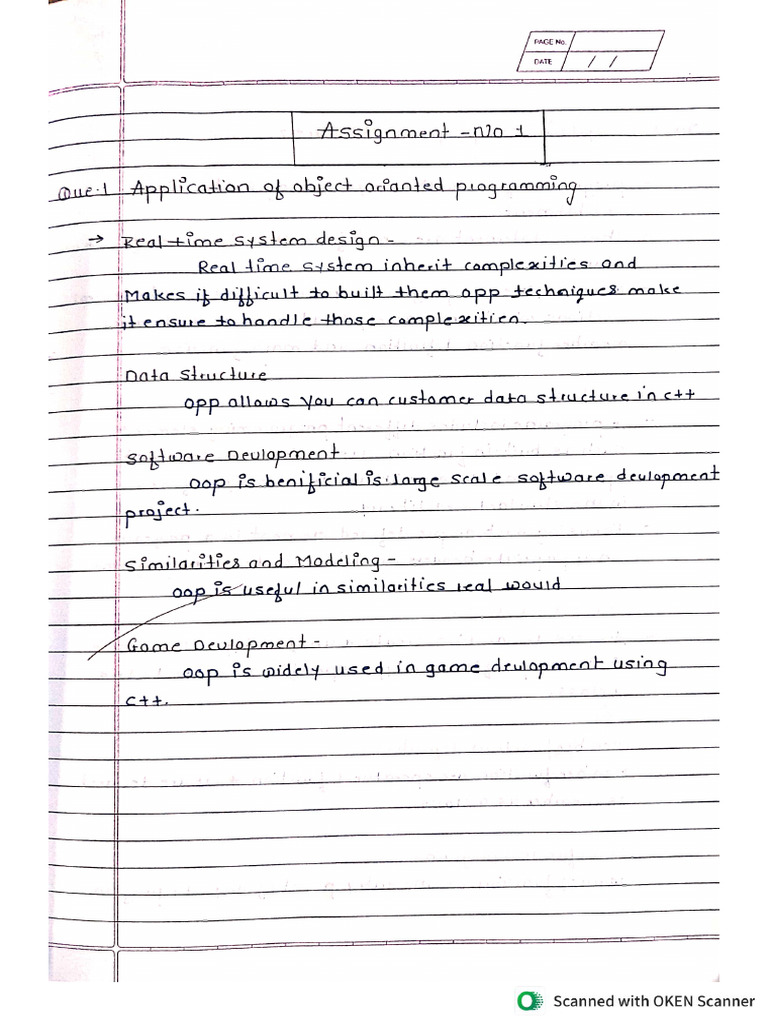 PAGE No.
DATE / /
Assignment -no 1
Que.1 Application of object orianted programming
→ Real time system design -
Real time system inherit complexities and
Makes it difficult to built them opp techniques make
it ensure to handle those complexities.
Data structure
opp allows you can customer data structure in c++
Software Devlopment
oop is benificial is large scale software devlopment
project.
Similarities and Modeling -
oop is useful in similarities real would
Game Devlopment -
oop is widely used in game devlopment using
c++.
Scanned with OKEN Scanner